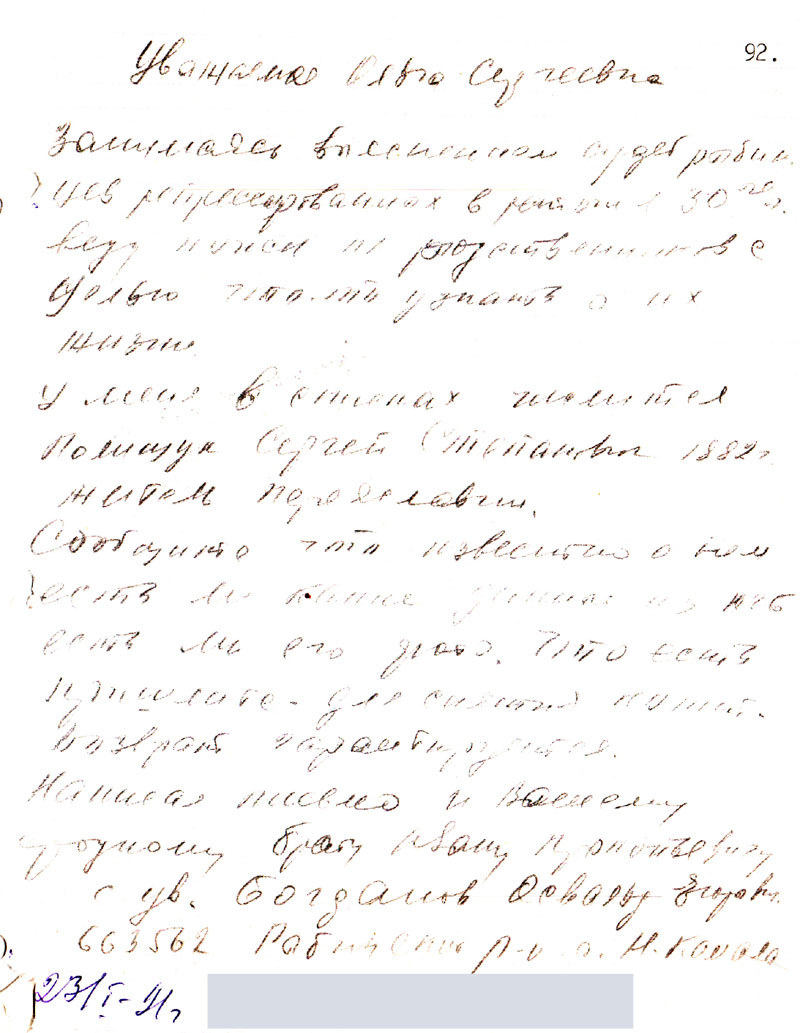 92.
Уважаемая Ольга Сергеевна
Занимаясь выяснением судеб рыбин
цев репрессированных в 30 гг.
веду поиск их родственников с
целью что-то узнать о их
жизни.
У меня в списках значится
Полищук Сергей Степанович 1882г
житель Переяславки.
Сообщите что известно о нем
есть ли какие данные из КГБ
есть ли его фото. Что есть
пришлите - для снятия копии.
Возврат гарантируется.
Написал письмо и Вашему
брату Ивану Прокопьевичу
с ув. Богданов Освальд Егорович
663562 Рыбинский р-н с. Н. Камала
23/I-91г